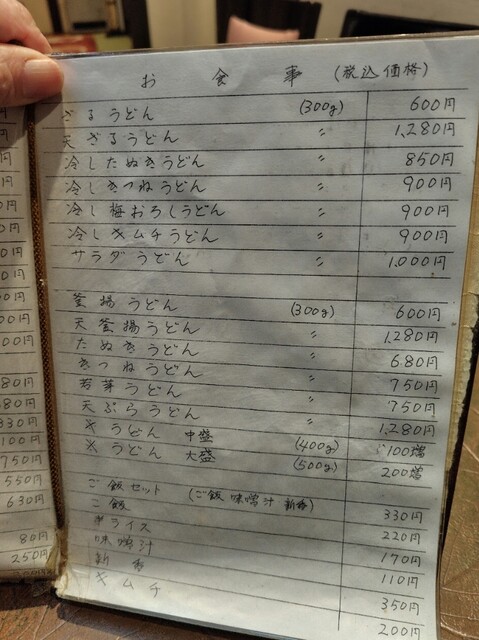 750円
550円
630円
80円
250円
お食事 (税込価格)
ざるうどん (300g) 600円
天ざるうどん 〃 1,280円
冷したぬきうどん 〃 850円
冷しきつねうどん 〃 900円
冷し梅おろしうどん 〃 900円
冷しキムチうどん 〃 900円
サラダうどん 〃 1,000円
釜揚うどん (300g) 600円
天釜揚うどん 〃 1,280円
たぬきうどん 〃 680円
きつねうどん 〃 750円
若芽うどん 〃 750円
天ぷらうどん 〃 1,280円
※うどん 中盛 (400g) 100増
※うどん 大盛 (500g) 200増
ご飯セット (ご飯 味噌汁 新香) 330円
ご飯 220円
半ライス 170円
味噌汁 110円
新香 350円
キムチ 200円